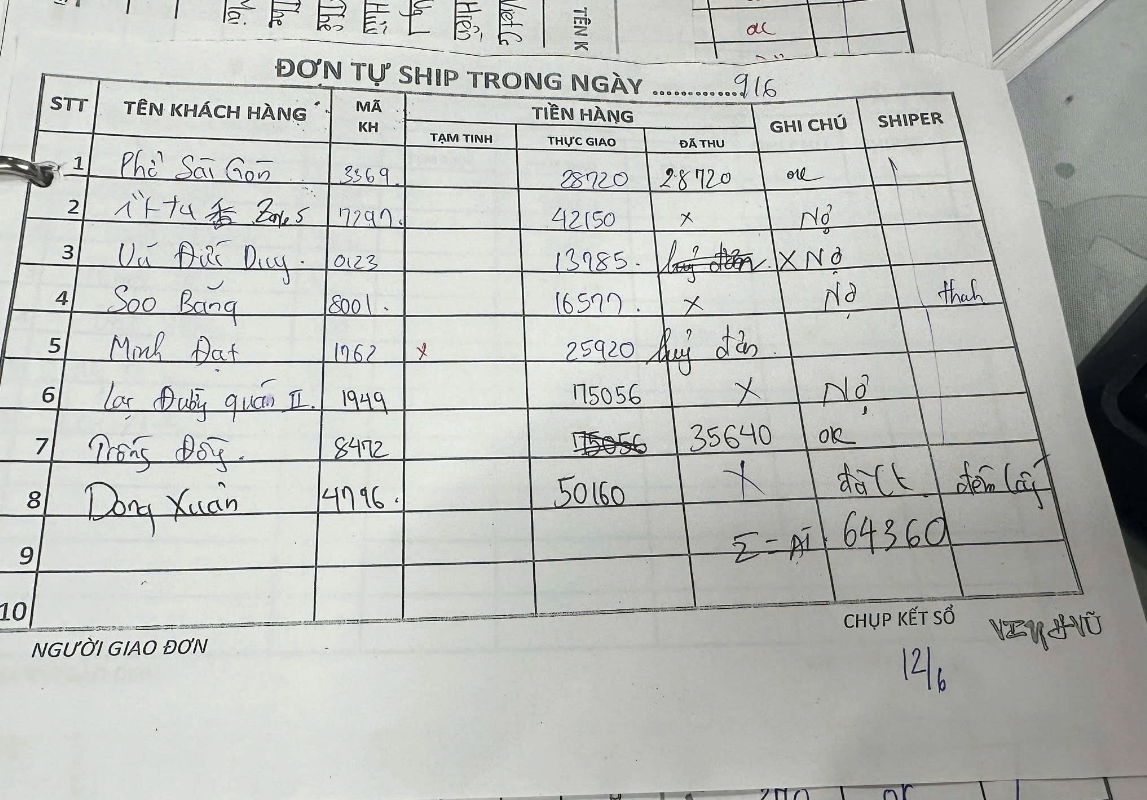 TÊN K
ĐƠN TỰ SHIP TRONG NGÀY .............9/6
STT TÊN KHÁCH HÀNG MÃ KH TIỀN HÀNG GHI CHÚ SHIPER
TẠM TINH THỰC GIAO ĐÃ THU
1 Phở Sài Gòn 3369. 28720 28720 ok
2 Zone 5 7297. 42150 x Nợ
3 Vũ Đức Duy. 0123 13785. huỷ đơn. X Nợ
4 Soo Băng 8001. 16577. X Nợ thah
5 Minh Đạt 1762 x 25920 huỷ đơn.
6 Lạc quán II. 1949 175056 X Nợ
7 Trống Đồng. 8472 175056 35640 OK
8 Dong Xuân 4796. 50160 X đã Ct đếm lấy
9 Σ = 64360
10
NGƯỜI GIAO ĐƠN CHỤP KẾT SỔ
12/6